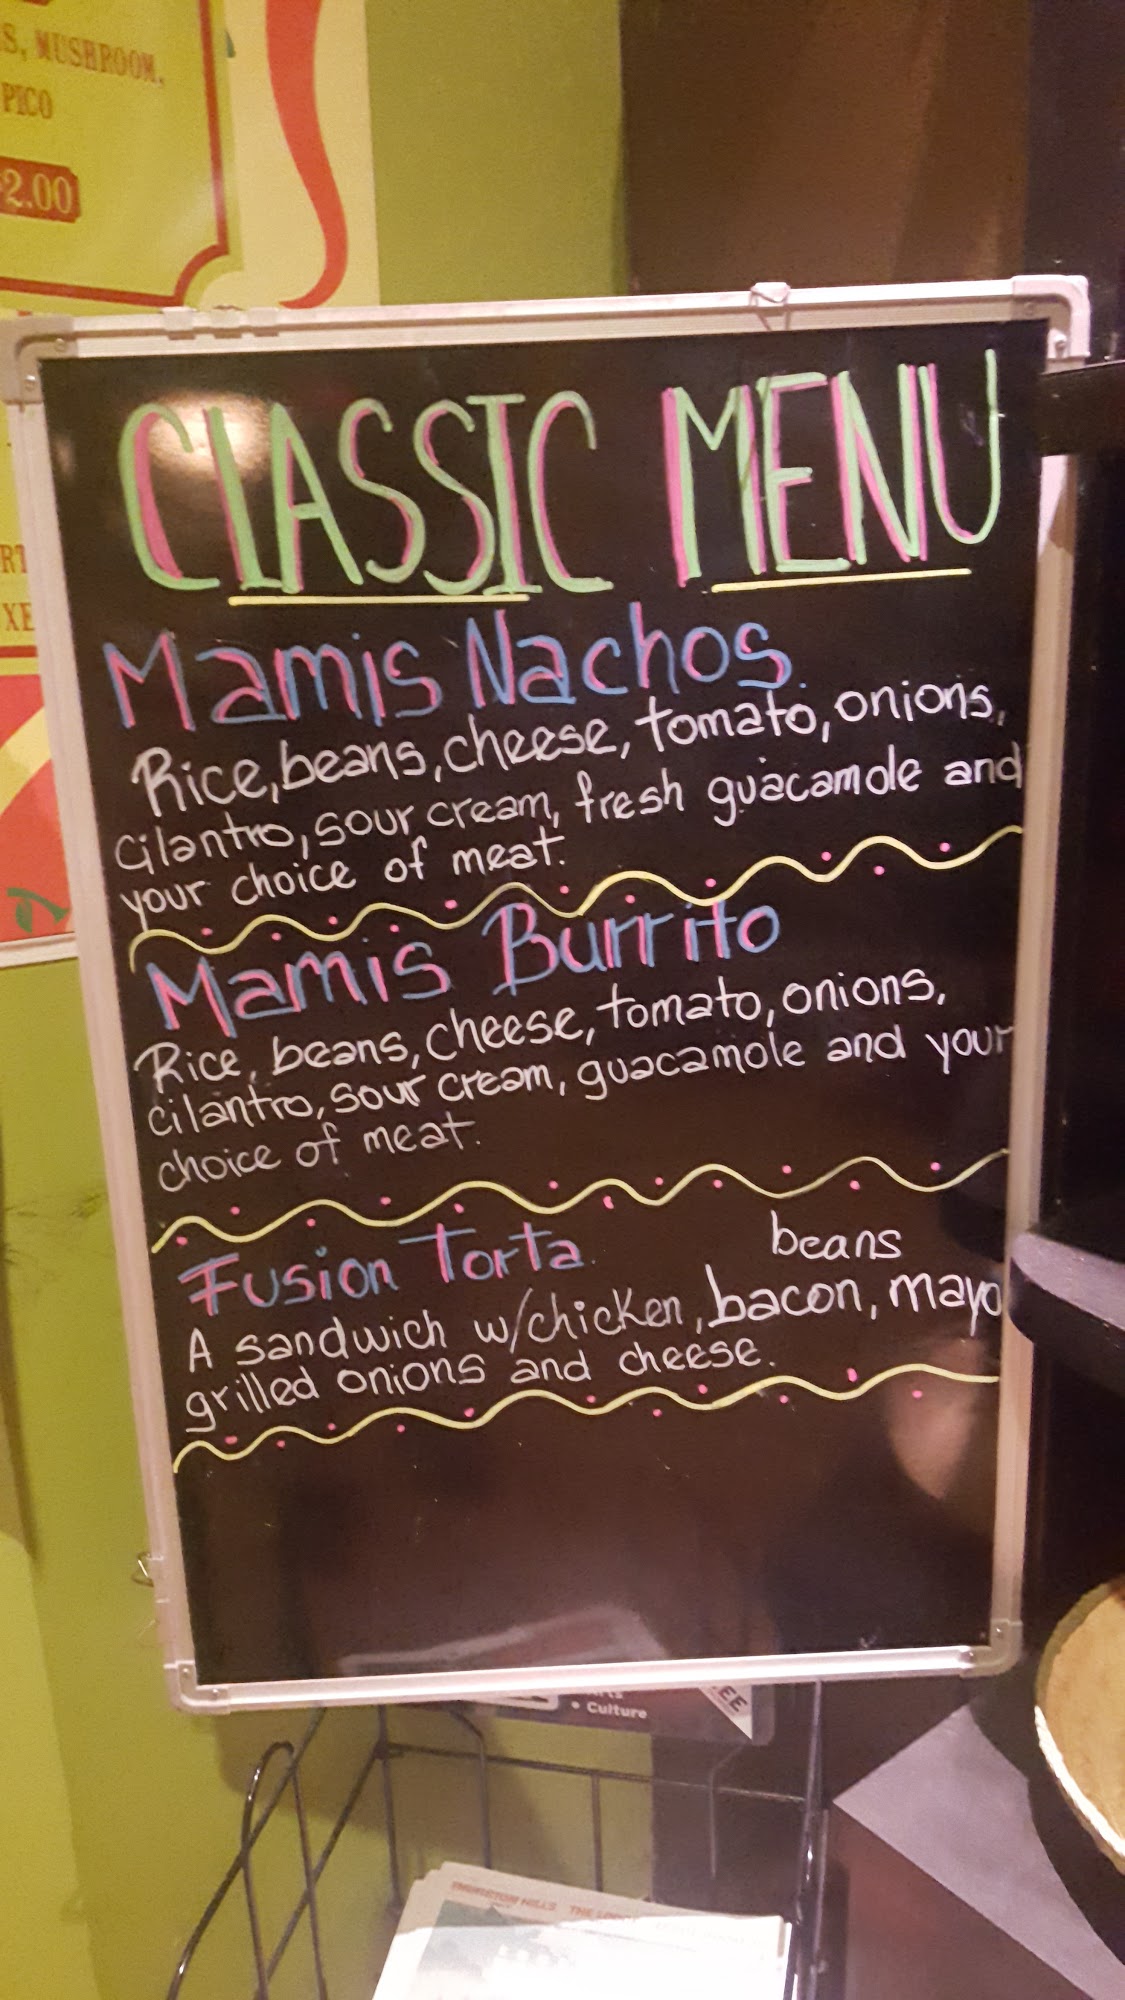 S, MUSHROOM,
PICO
2.00
RT
XE
CLASSIC MENU
Mamis Nachos
Rice, beans, cheese, tomato, onions,
cilantro, sour cream, fresh guacamole and
your choice of meat.
Mamis Burrito
Rice, beans, cheese, tomato, onions,
cilantro, sour cream, guacamole and your
choice of meat.
Fusion Torta
beans
A sandwich w/chicken, bacon, mayo
grilled onions and cheese.
• Culture
THE